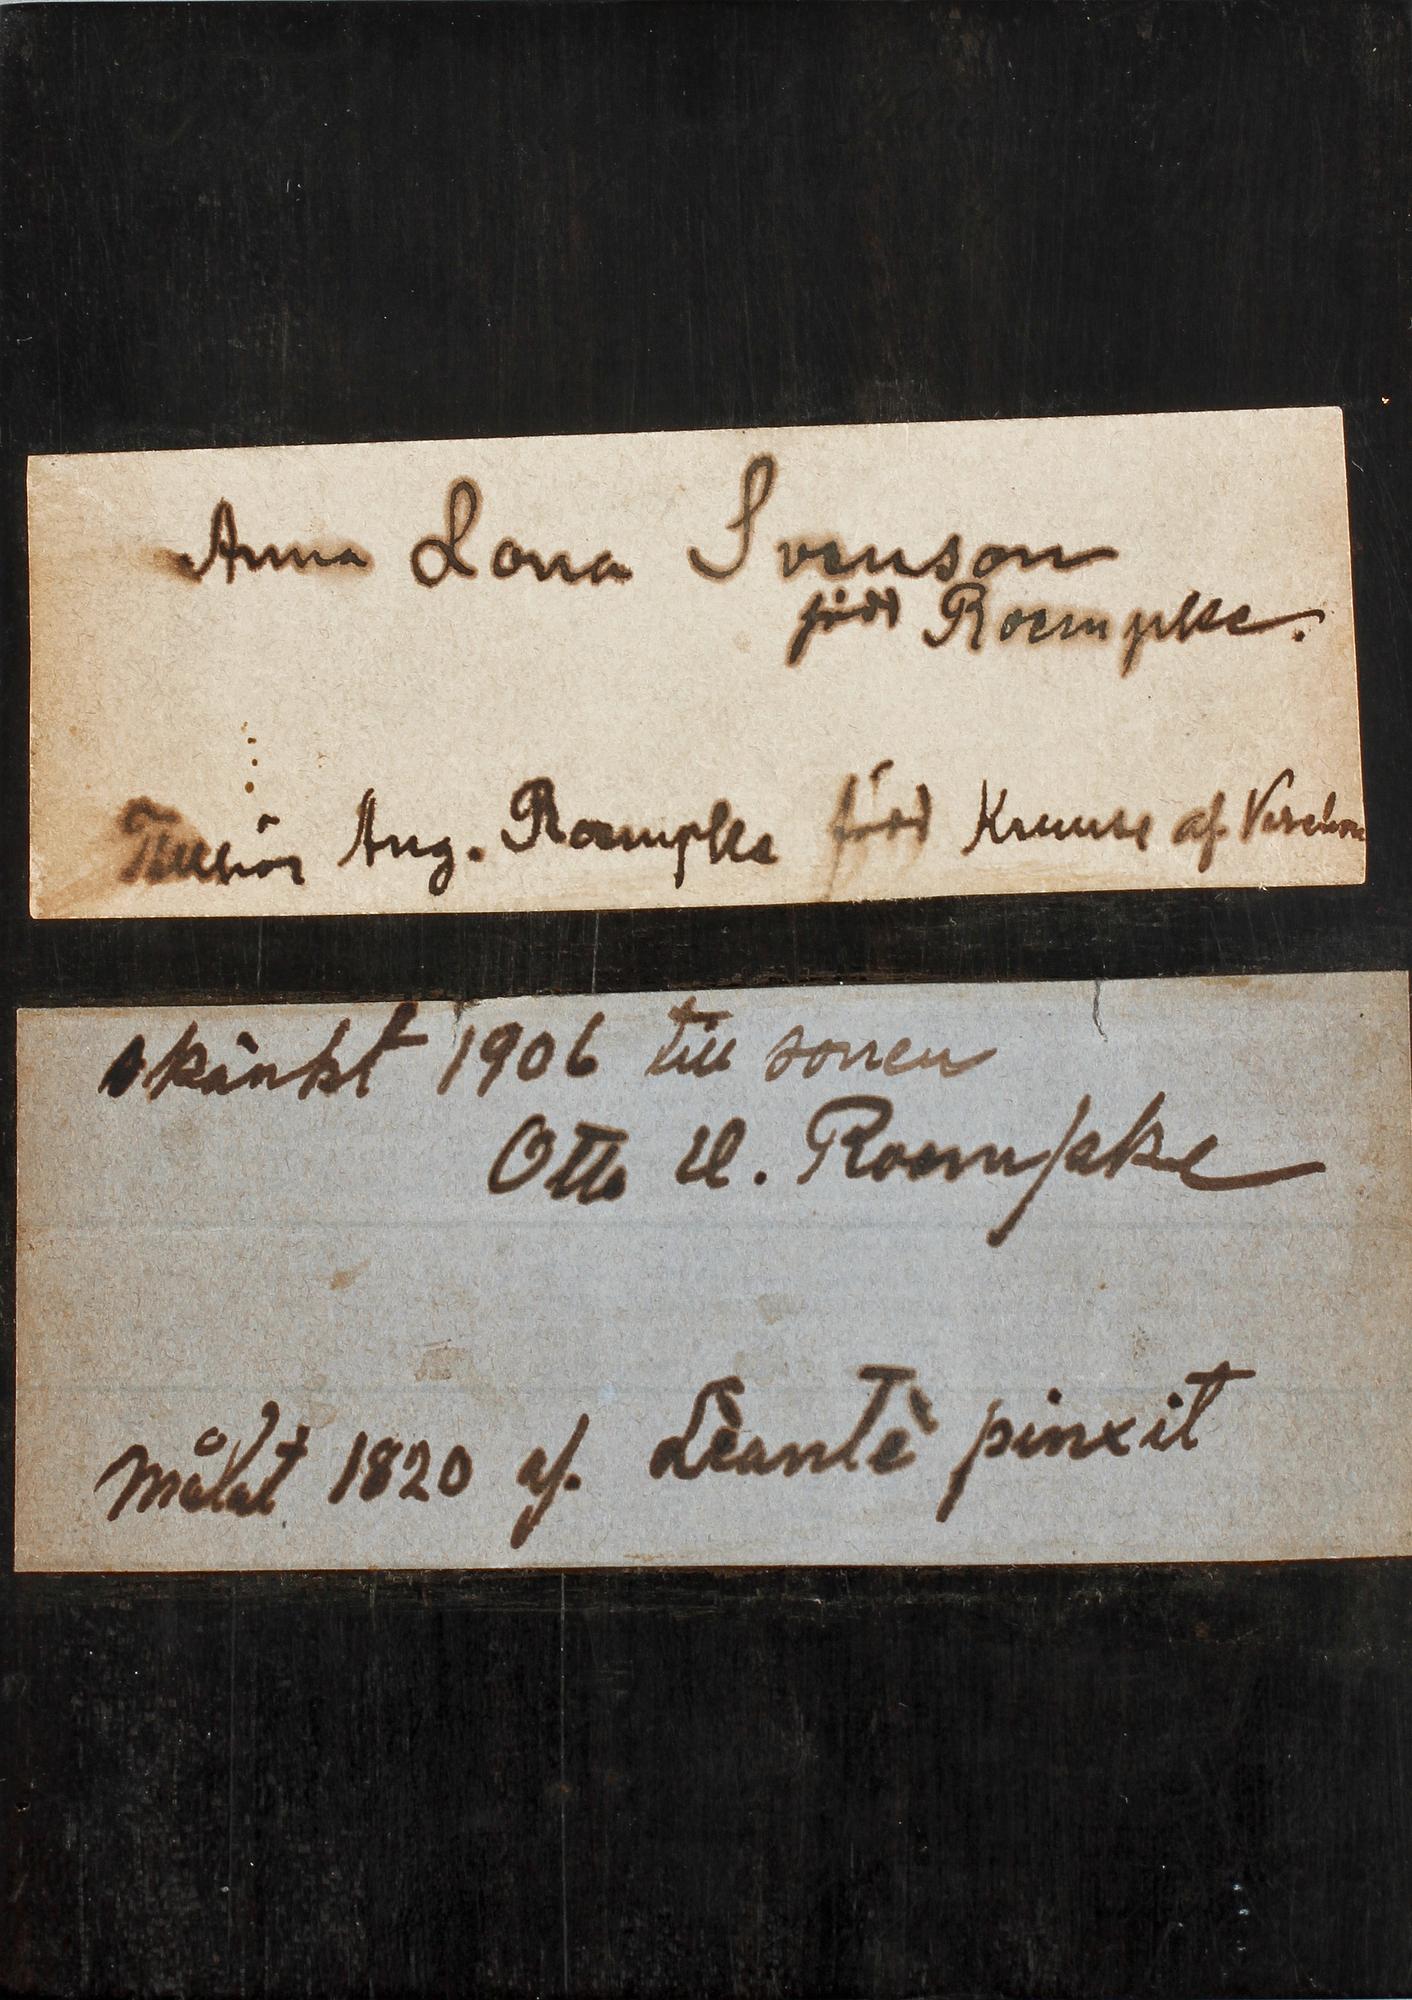 Anna Lona Svenson
född Roempke.
Tillhör Aug. Roempke född Kruuse af Verchou
skänkt 1906 till sonen
Otto U. Roempke
målat 1820 af. Lèantè pinxit